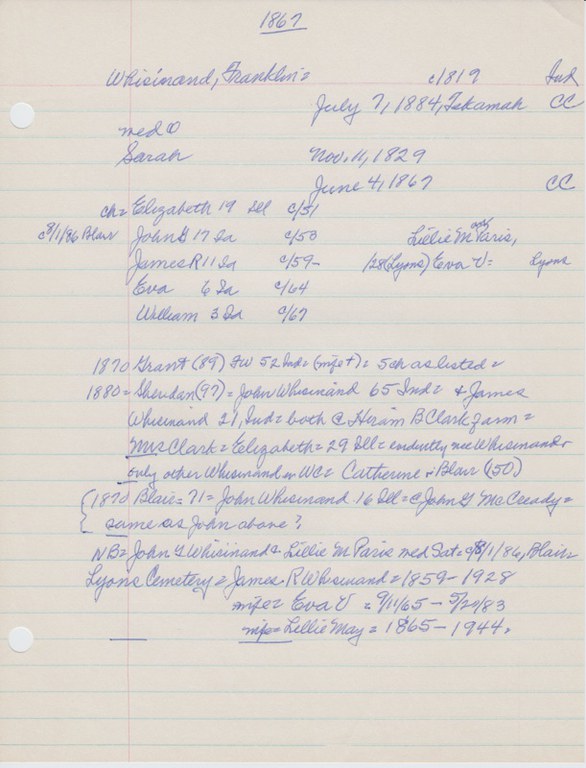 1867
Whisinand, Franklin = c/1819 Ind
July 7, 1884, Tekamah CC
med @
Sarah Nov. 11, 1829
June 4, 1867 CC
ch = Elizabeth 19 Ill c/51
c8/1/86 Blair John G 17 Ia c/53 Lillie M Paris,
James R 11 Ia c/59 - /28 (Lyons) Eva V = Lyons
Eva 6 Ia c/64
William 3 Ia c/67
1870 Grant (89) FW 52 Ind = (wife +) = 5 ch as listed =
1880 = Sheridan (97) = John Whisinand 65 Ind = + James
Whisinand 21, Ind = both @ Hiram B Clark farm =
Mrs Clark = Elizabeth = 29 Ill = evidently nee Whisinand +
only other Whisinand in WC = Catherine + Blair (150)
{ 1870 Blair = 71 = John Whisinand 16 Ill = @ John G McCready =
same as John above?
NB = John G Whisinand + Lillie M Paris med Sat = c8/1/86, Blair =
Lyons Cemetery = James R Whisinand = 1859 - 1928
wife = Eva V = 9/11/65 - 5/20/83
wife = Lillie May = 1865 - 1944.